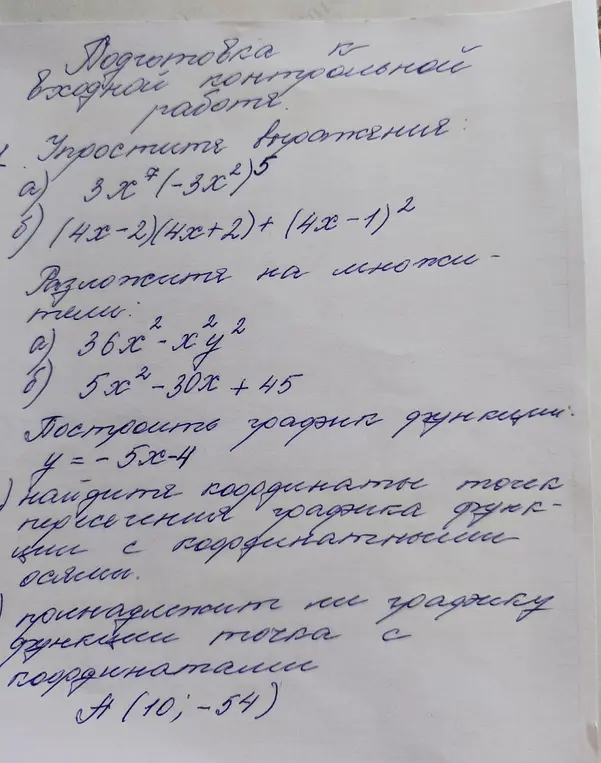 Подготовка к
входной контрольной
работе.
1 Упростите выражения:
а) 3x⁷(-3x²)⁵
б) (4x-2)(4x+2)+(4x-1)²
Разложите на множи-
тели:
а) 36x²-x²y²
б) 5x²-30x+45
Построить график функции.
y=-5x-4
) найдите координаты точек
пересечения графика функ-
ции с координатными
осями.
) принадлежит ли графику
функции точка с
координатами
А (10; -54)